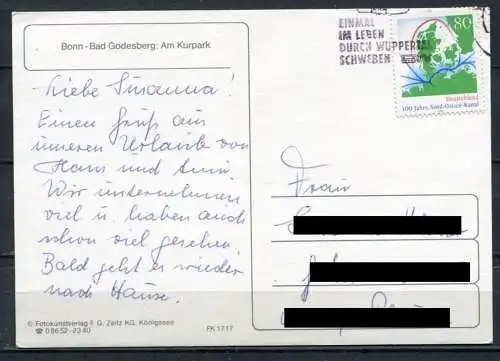 Bonn-Bad Godesberg: Am Kurpark
EINMAL
IM LEBEN
DURCH WUPPERTAL
SCHWEBEN
80
Deutschland
100 Jahre Nord-Ostsee-Kanal
Liebe Susanna!
Einen Gruß aus
unseren Urlaub von
Hans und
Wir unternehmen
viel u. haben auch
schon viel gesehen.
Bald geht es wieder
nach Hause.
Frau
© Fotokunstverlag F. G. Zeitz KG, Königssee
☎ 0 86 52 - 23 40
FK 1717